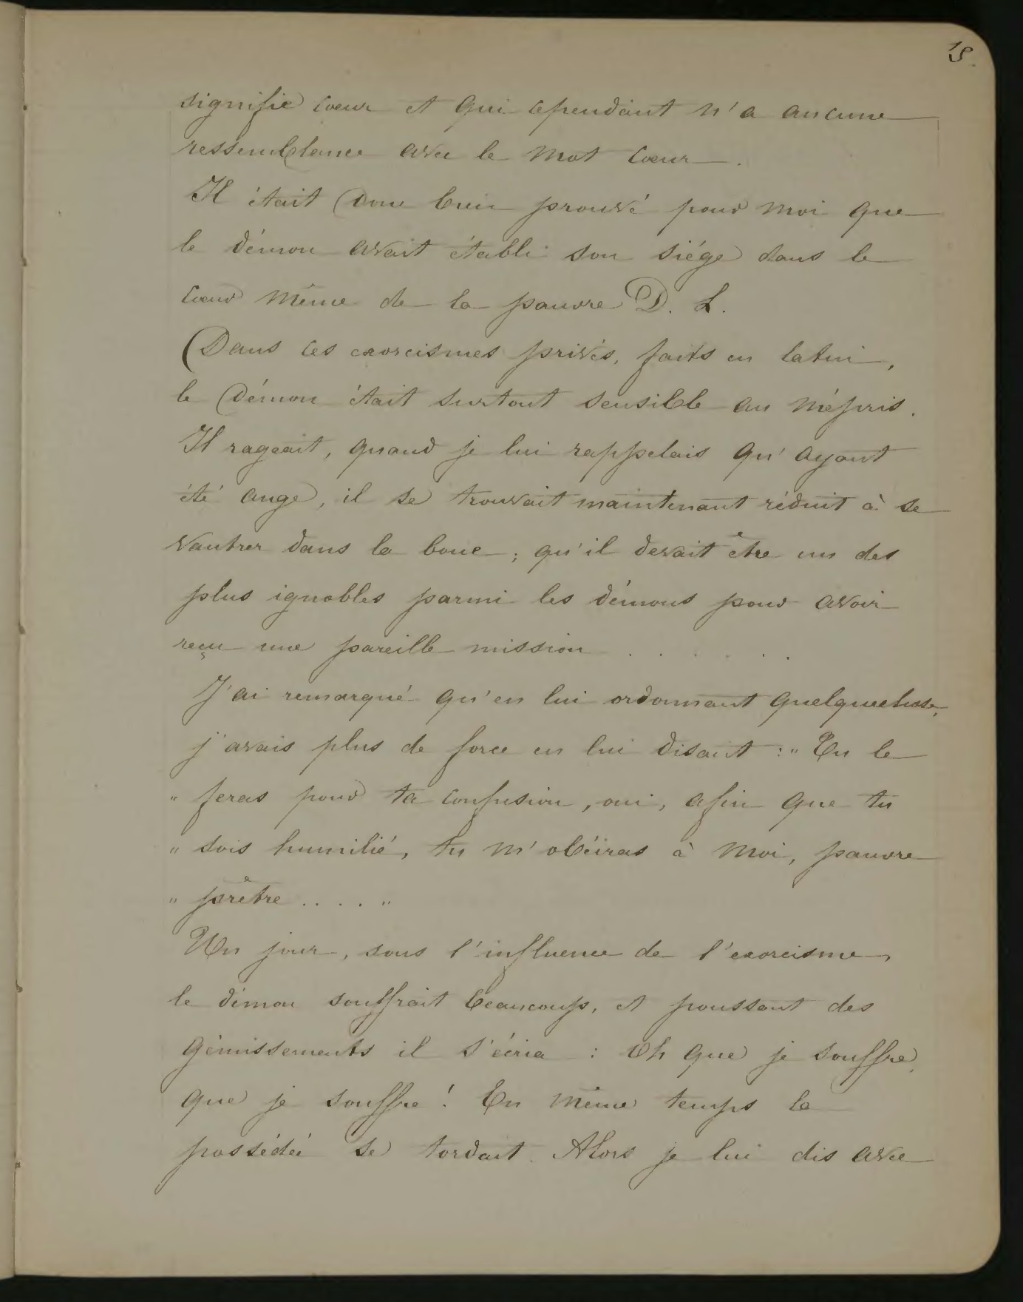 signifie cœur et qui cependant n'a aucune
ressemblance avec le mot cœur.
Il était donc bien prouvé pour moi que
le démon avait établi son siége dans le
cœur même de la pauvre D. L.
Dans ces exorcismes privés, faits en latin,
le démon était surtout sensible au mépris.
Il rageait, quand je lui rappelais qu'ayant
été ange, il se trouvait maintenant réduit à se
vautrer dans la boue ; qu'il devait être un des
plus ignobles parmi les démons pour avoir
reçu une pareille mission . . . . . .
J'ai remarqué qu'en lui ordonnant quelquechose,
j'avais plus de force en lui disant : " Tu le
" feras pour ta confusion, oui, afin que tu
" sois humilié, tu m'obéiras à moi, pauvre
" prêtre ..... "
Un jour, sous l'influence de l'exorcisme,
le démon souffrait beaucoup, et poussant des
gémissements il s'écria : Oh que je souffre,
que je souffre ! En même temps la
possédée se tordait. Alors je lui dis avec